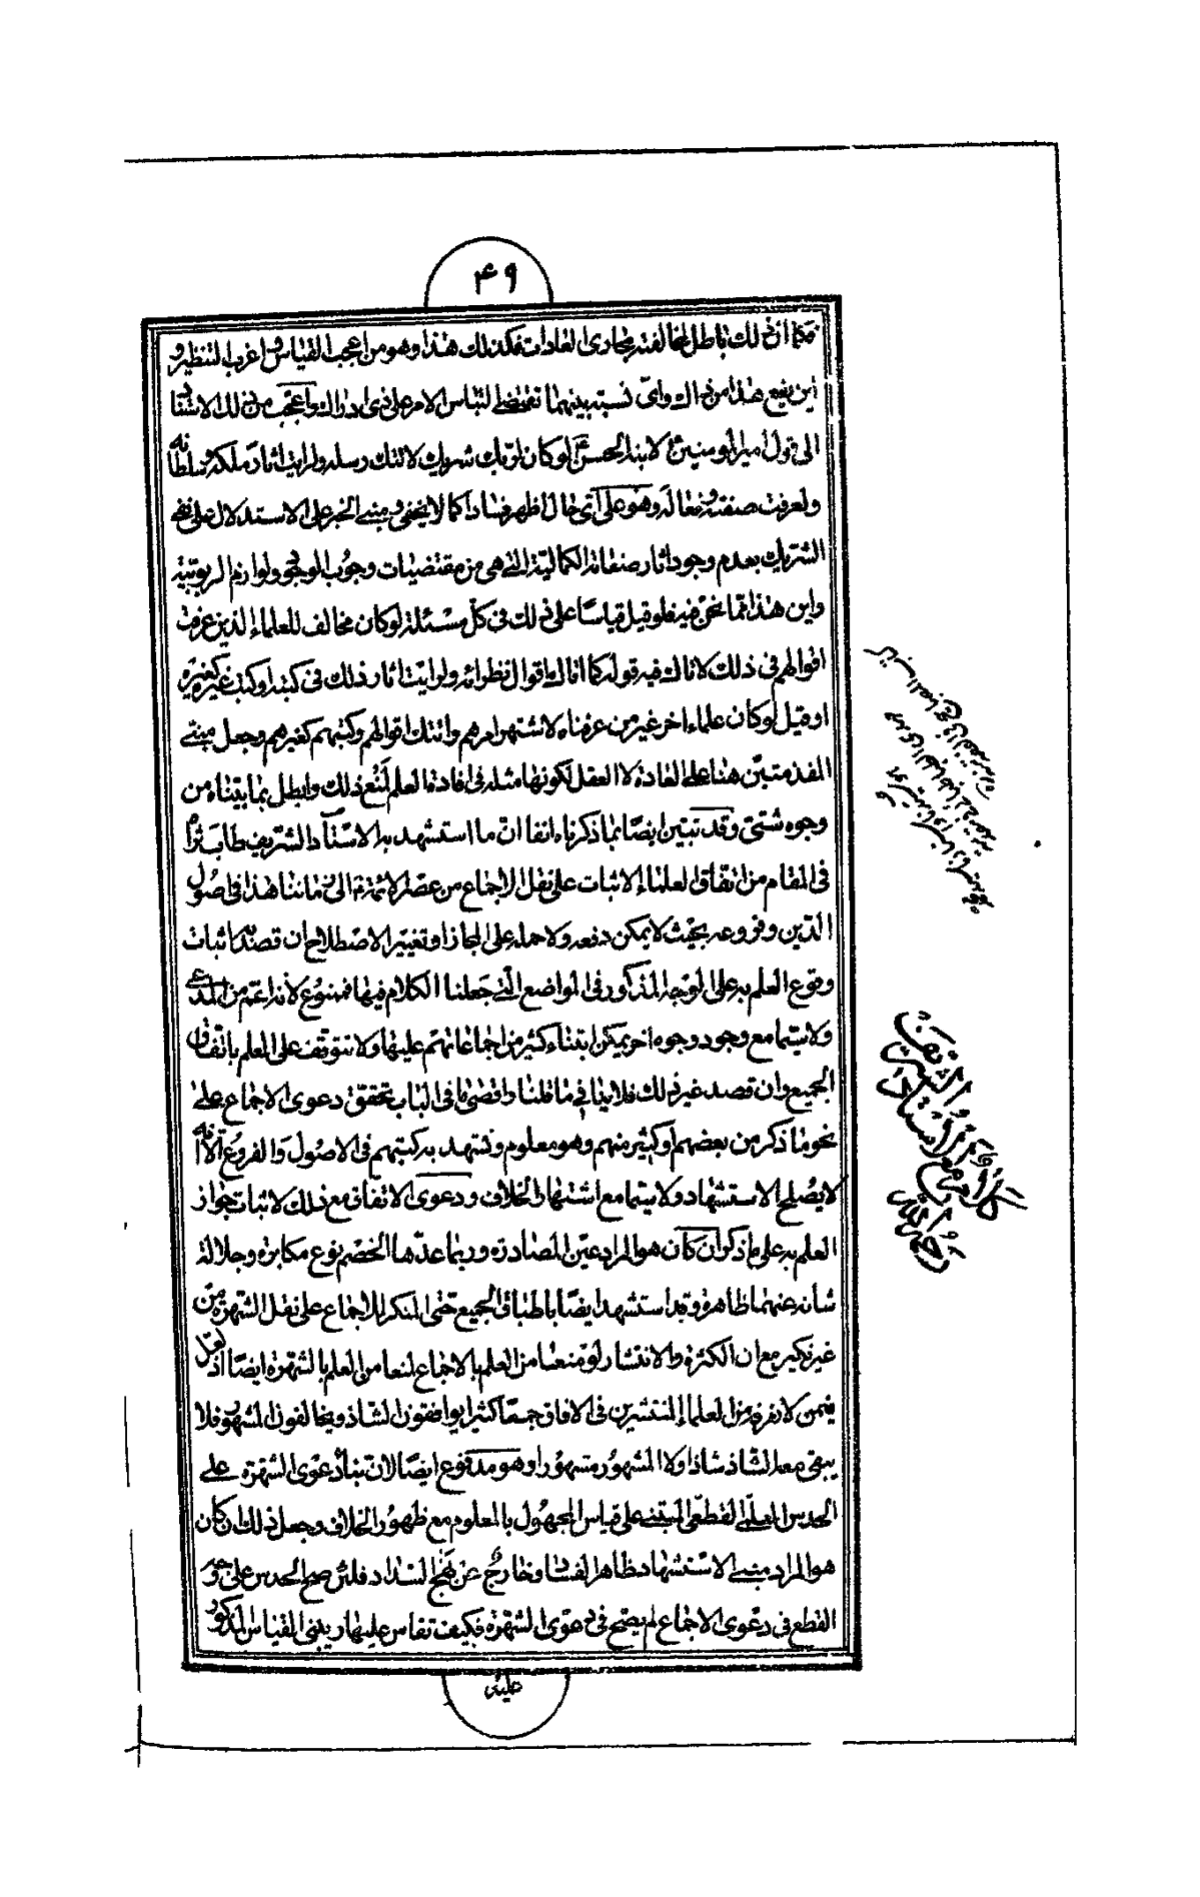 ۴۹
فكما ان ذلك باطل لمخالفته لمجارى العادات فكذلك هذا وهو من اعجب القياس واغرب التنظير و
اين يقع هذا من ذاك واى نسبة بينهما تقتضى التباس الامر على ذى ادراك واعجب من ذلك الاستناد
الى قول امير المؤمنين ع لابنه الحسن ع لو كان لربك شريك لاتتك رسله ولرايت اثار ملكه وسلطانه
ولعرفت صفته وفعاله وهو على اى حال اظهر فسادا كما لا يخفى ومبنى الخبر على الاستدلال على نفى
الشريك بعدم وجود اثار صفاته الكمالية التى هى من مقتضيات وجوب الوجود ولوازم الربوبية
واين هذا مما نحن فيه فلو قيل قياسا على ذلك فى كل مسئلة لو كان مخالف للعلماء الذين عرفت
اقوالهم فى ذلك لاتاك فيه قوله كما اتاك اقوال نظرائه ولرايت اثار ذلك فى كتبه او كتب غيره كغيره
او قيل لو كان علماء اخر غير من عرفناه لاشتهر امرهم واتتك اقوالهم وكتبهم كغيرهم وجعل مبنى
المقدمتين هنا على العادة لا العقل لكونها مثله فى افادة العلم لمنع ذلك وابطل بما بيناه من
وجوه شتى وقد تبين ايضا بما ذكرناه انفا ان ما استشهد به الاستاد الشريف طاب ثراه
فى المقام من اتفاق العلماء الاثبات على نقل الاجماع من عصر الائمة الى زماننا هذا فى اصول
الدين وفروعه بحيث لا يمكن دفعه ولا حمله على المجاز او تغيير الاصطلاح ان قصد به اثبات
وقوع العلم به على الوجه المذكور فى المواضع التى جعلنا الكلام فيها فممنوع لانه اعم من المدعى
ولا سيما مع وجود وجوه اخر يمكن ابتناء كثير من اجماعاتهم عليها ولا تتوقف على العلم باتفاق
الجميع وان قصد غير ذلك فلا ينافى ما قلنا واقصى ما فى الباب تحقق دعوى الاجماع على
نحو ما ذكر من بعضهم او كثير منهم وهو معلوم وتشهد به كتبهم فى الاصول والفروع الا انه
لا يصلح للاستشهاد ولا سيما مع اشتهار الخلاف ودعوى الاتفاق مع ذلك لاثبات جواز
العلم به على ما ذكر ان كان هو المراد عين المصادرة وربما عدها الخصم نوع مكابرة وجلالة
شانه عنهما ظاهرة وقد استشهد ايضا باطباق الجميع حتى المنكر للاجماع على نقل الشهرة من
غير نكير مع ان الكثرة والانتشار لو منعنا من العلم بالاجماع لمنعا من العلم بالشهرة ايضا اذ لعل
فيمن لا نعرفه من العلماء المنتشرين فى الافاق جمعا كثيرا يوافقون الشاذ ويخالفون المشهور فلا
يبقى معه الشاذ شاذا ولا المشهور مشهورا وهو مدفوع ايضا لان بناء دعوى الشهرة على
الحدس العلمى القطعى المبتنى على قياس المجهول بالمعلوم مع ظهور الخلاف وجعل ذلك ان كان
هو المراد مبنى الاستشهاد ظاهر الفساد وخارج عن نهج السداد فلئن صح الحدس على وجه
القطع فى دعوى الاجماع لم يصح فى دعوى الشهرة فكيف تقاس عليها او يبنى القياس المذكور
عليه
كلام المرحوم الشريف
مع الاستاد
رحمه الله